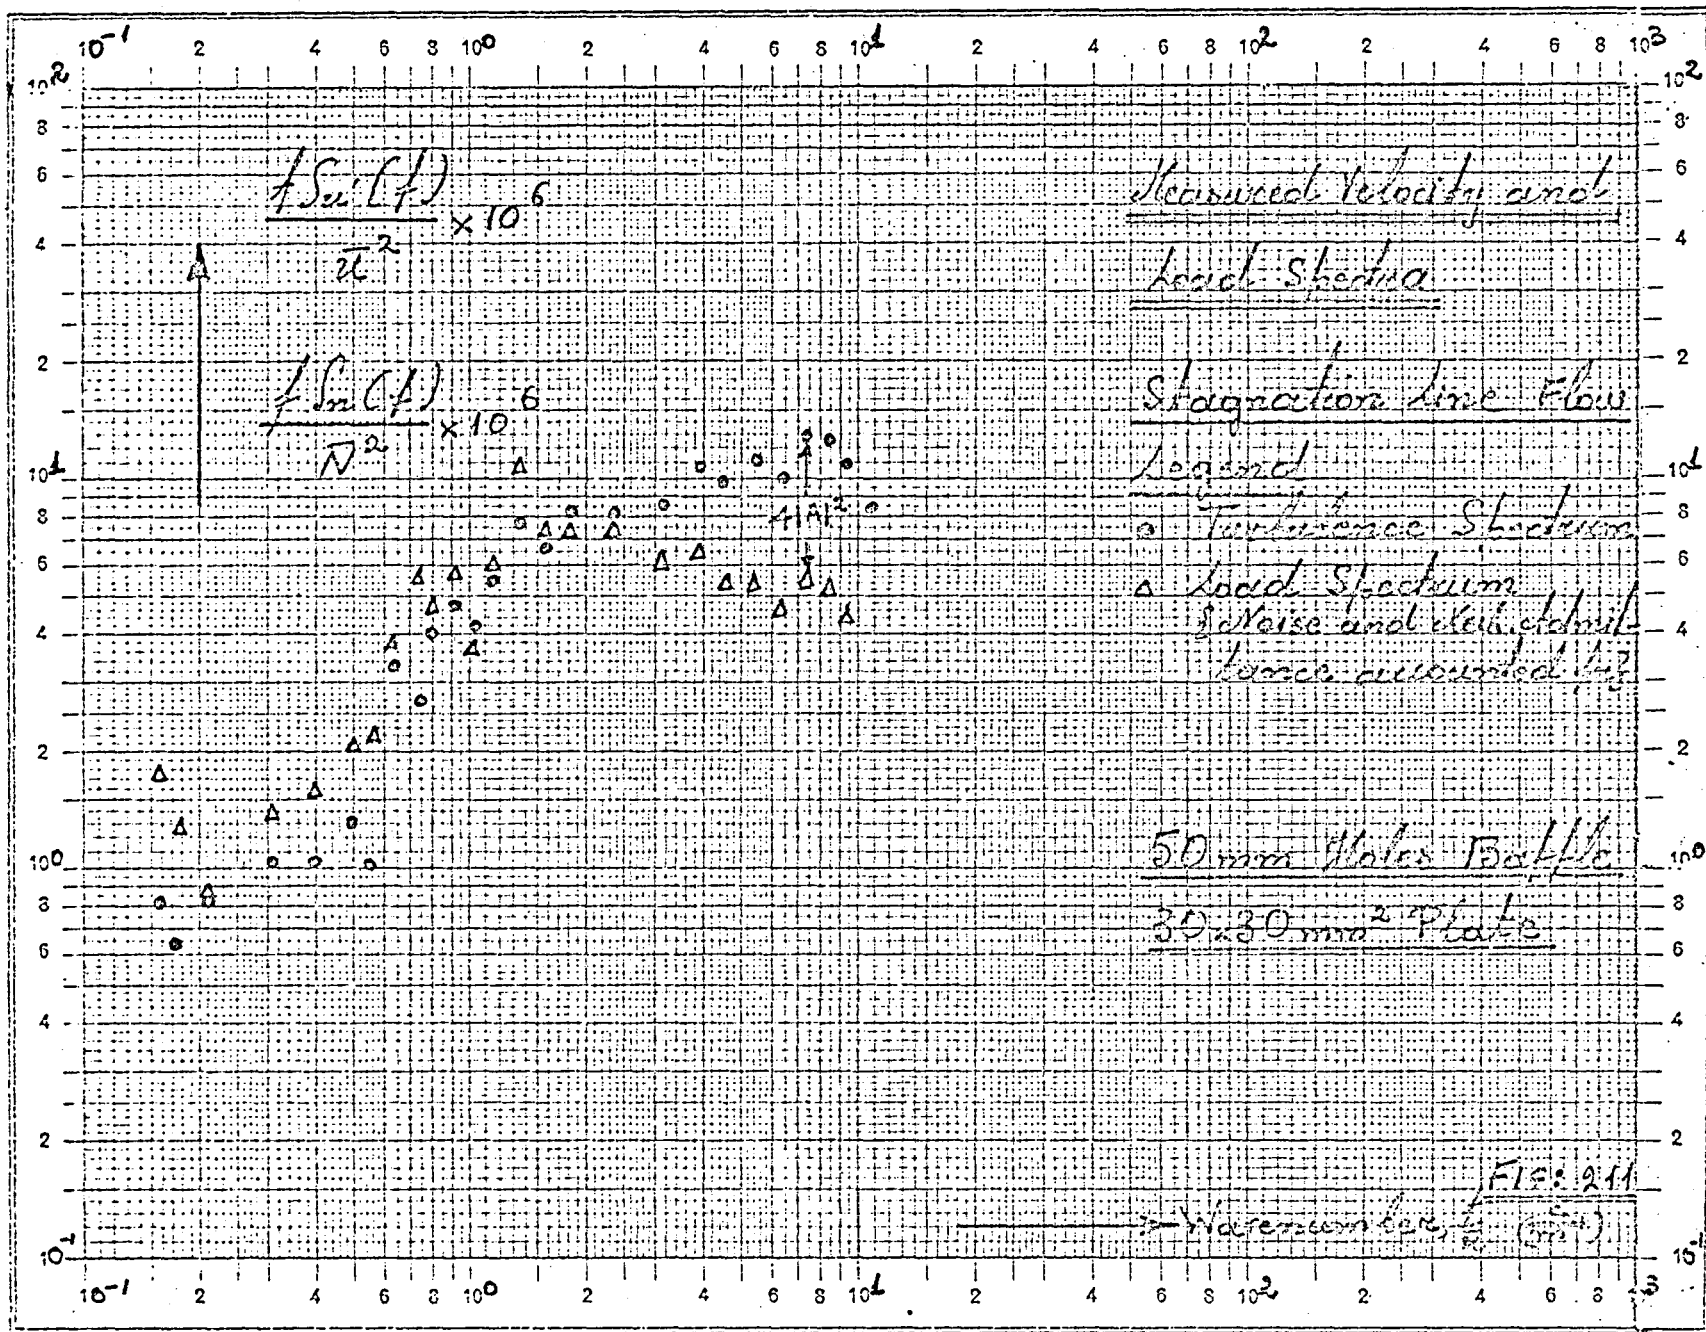 10⁻¹ 2 4 6 8 10⁰ 2 4 6 8 10¹ 2 4 6 8 10² 2 4 6 8 10³
10² 8 6 4 2 10¹ 8 6 4 2 10⁰ 8 6 4 2 10⁻¹
f Su'(f)
× 10⁶
ū²
f Sn(f)
× 10⁶
N̄²
4|A|²
Measured Velocity and
Load Spectra
Stagnation Line Flow
Legend
o Turbulence Spectrum
Δ Load Spectrum
Noise and Admit-
tance accounted
50 mm Holes Baffle
30x30 mm² Plate
FIG: 211
Wavenumber,
10² 8 6 4 2 10¹ 8 6 4 2 10⁰ 8 6 4 2 10⁻
10⁻¹ 2 4 6 8 10⁰ 2 4 6 8 10¹ 2 4 6 8 10² 2 4 6 8